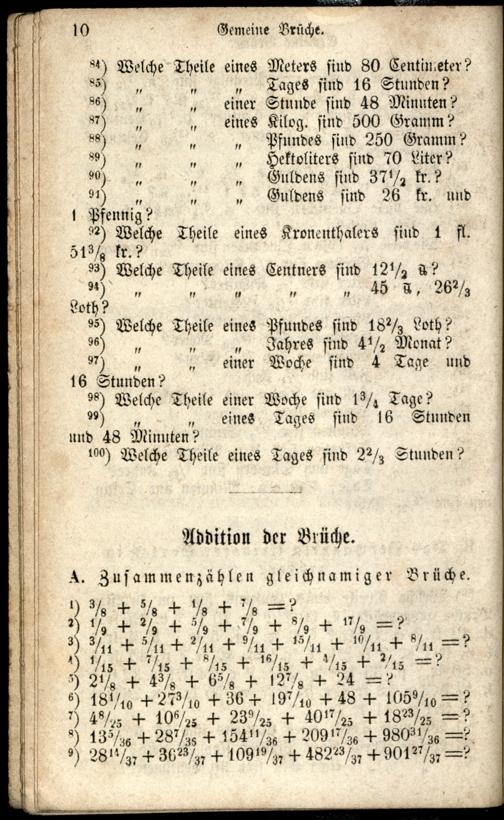 10 Gemeine Brüche.
84) Welche Theile eines Meters sind 80 Centimeter?
85) „ „ „ Tages sind 16 Stunden?
86) „ „ einer Stunde sind 48 Minuten?
87) „ „ eines Kilog. sind 500 Gramm?
88) „ „ „ Pfundes sind 250 Gramm?
89) „ „ „ Hektoliters sind 70 Liter?
90) „ „ „ Guldens sind 37 1/2 kr.?
91) „ „ „ Guldens sind 26 kr. und
1 Pfennig?
92) Welche Theile eines Kronenthalers sind 1 fl.
51 3/8 kr.?
93) Welche Theile eines Centners sind 12 1/2 ℔?
94) „ „ „ „ „ 45 ℔, 26 2/3
Loth?
95) Welche Theile eines Pfundes sind 18 2/3 Loth?
96) „ „ „ Jahres sind 4 1/2 Monat?
97) „ „ einer Woche sind 4 Tage und
16 Stunden?
98) Welche Theile einer Woche sind 1 3/4 Tage?
99) „ „ eines Tages sind 16 Stunden
und 48 Minuten?
100) Welche Theile eines Tages sind 2 2/3 Stunden?
Addition der Brüche.
A. Zusammenzählen gleichnamiger Brüche.
1) 3/8 + 5/8 + 1/8 + 7/8 = ?
2) 1/9 + 2/9 + 5/9 + 7/9 + 8/9 + 17/9 = ?
3) 3/11 + 5/11 + 2/11 + 9/11 + 15/11 + 10/11 + 8/11 = ?
4) 1/15 + 7/15 + 8/15 + 16/15 + 4/15 + 2/15 = ?
5) 2 1/8 + 4 3/8 + 6 5/8 + 12 7/8 + 24 = ?
6) 18 1/10 + 27 3/10 + 36 + 19 7/10 + 48 + 105 9/10 = ?
7) 4 8/25 + 10 6/25 + 23 9/25 + 40 17/25 + 18 23/25 = ?
8) 13 5/36 + 28 7/36 + 154 11/36 + 209 17/36 + 980 31/36 = ?
9) 28 14/37 + 36 23/37 + 109 19/37 + 482 23/37 + 901 27/37 = ?